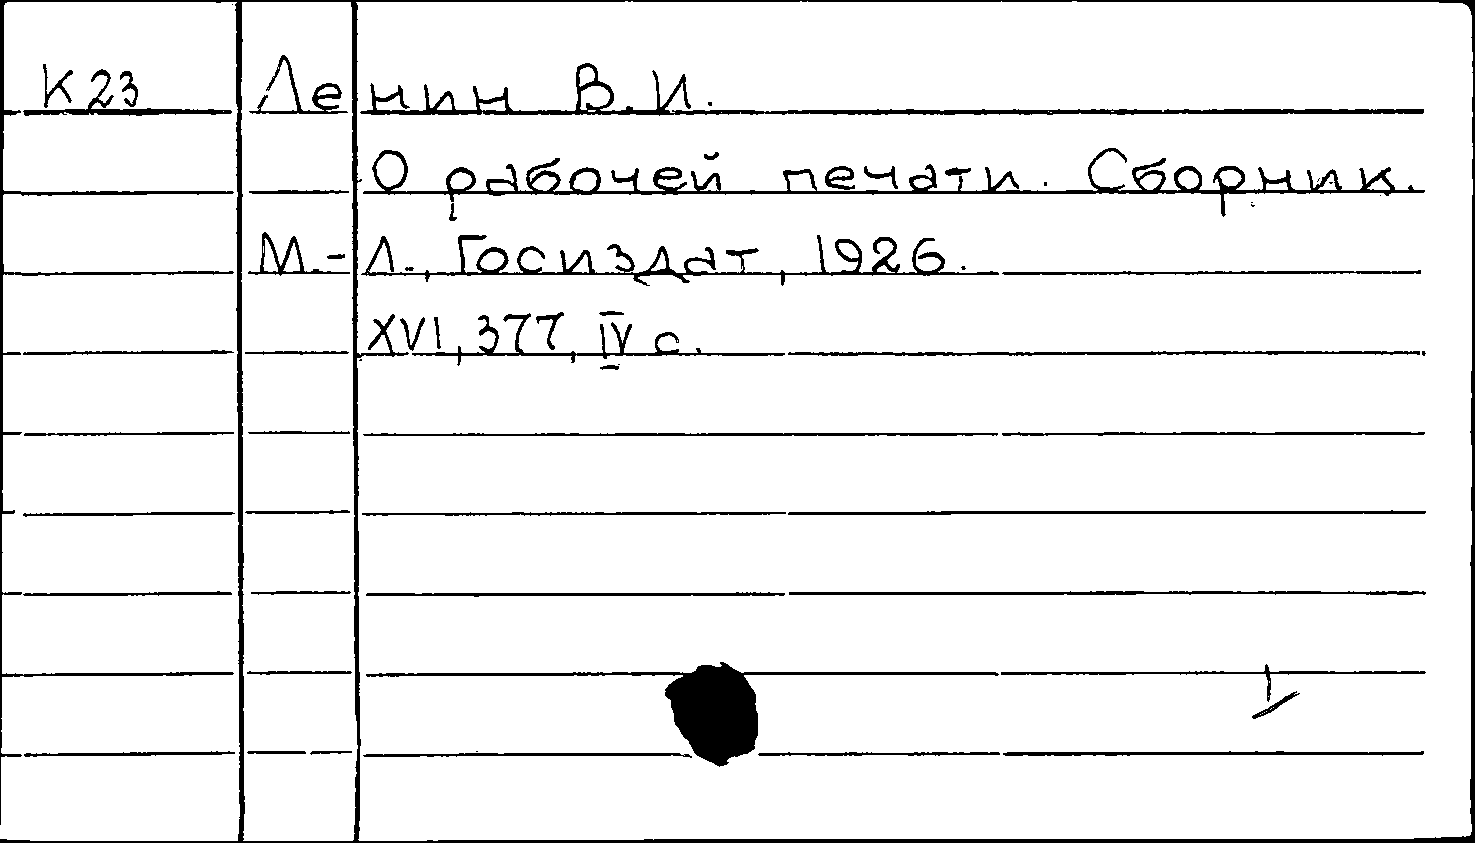 К23 Ленин В.И.
О рабочей печати. Сборник.
М.-Л., Госиздат, 1926.
XVI, 377, IV с.
1